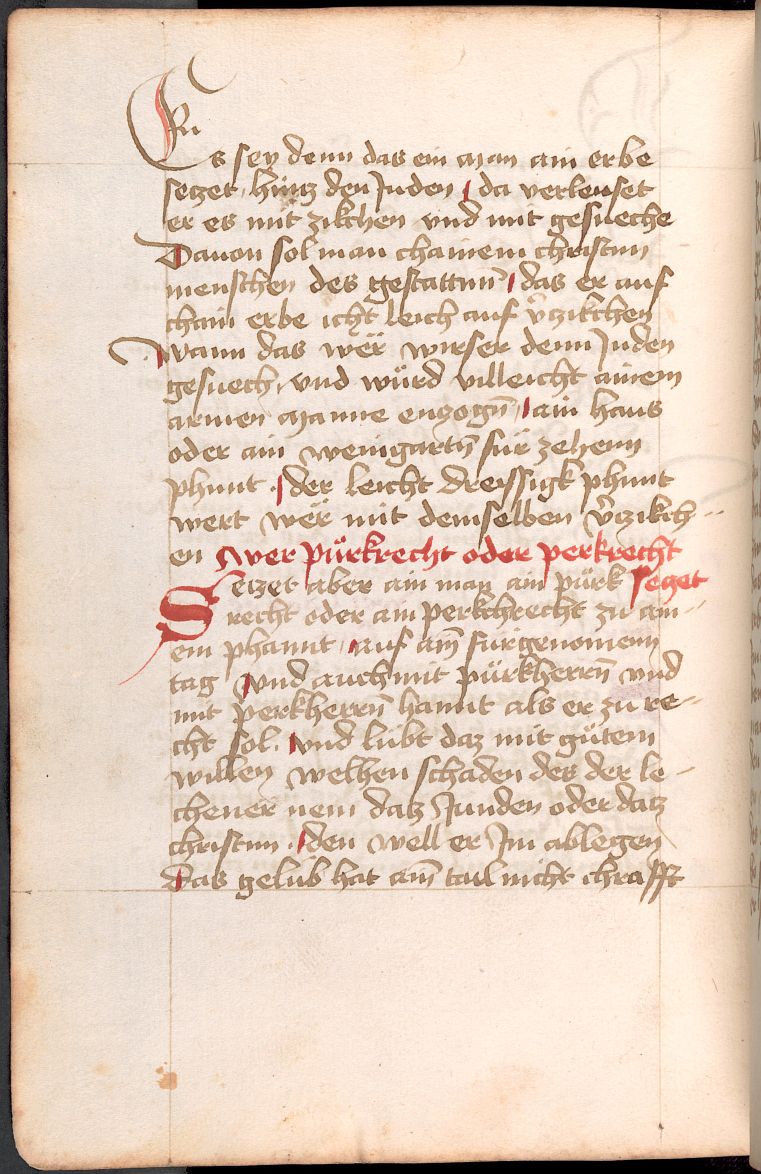 Es sey denn das ein man ain erbe
seczet hincz den Juden / da verleuset
er es mit zikchen vnd mit gesueche
Dauon sol man chainem christmn
menschen des gestattmn / das er auf
chain erbe icht leich auf v̈rzikchen
Wann das wër wirser denn Juden
gesuech / vnd würd villeicht ainem
armen manne enzogn̄ / ain haus
oder ain weingartn̄ für zehenn
phunt / der leicht dreissigk phunt
wert wër mit demselben v̈rzikch-
en Wer pürkrecht oder perkrecht
Seczet aber ain man ain pürk seczet
recht oder ain perkchrecht zu ain-
em phannt / auf aim̄ fürgenomenn
tag / vnd auch mit pürkherrn̄ vnd
mit perkherrn̄ hannt als er zu re-
cht sol / vnd lubt daz mit gütem
willen welhen schaden des der le-
chener nem dacz Junden oder dacz
christmn / den well er Im ablegen
Das gelüb hat aim̄ tail nicht chrafft